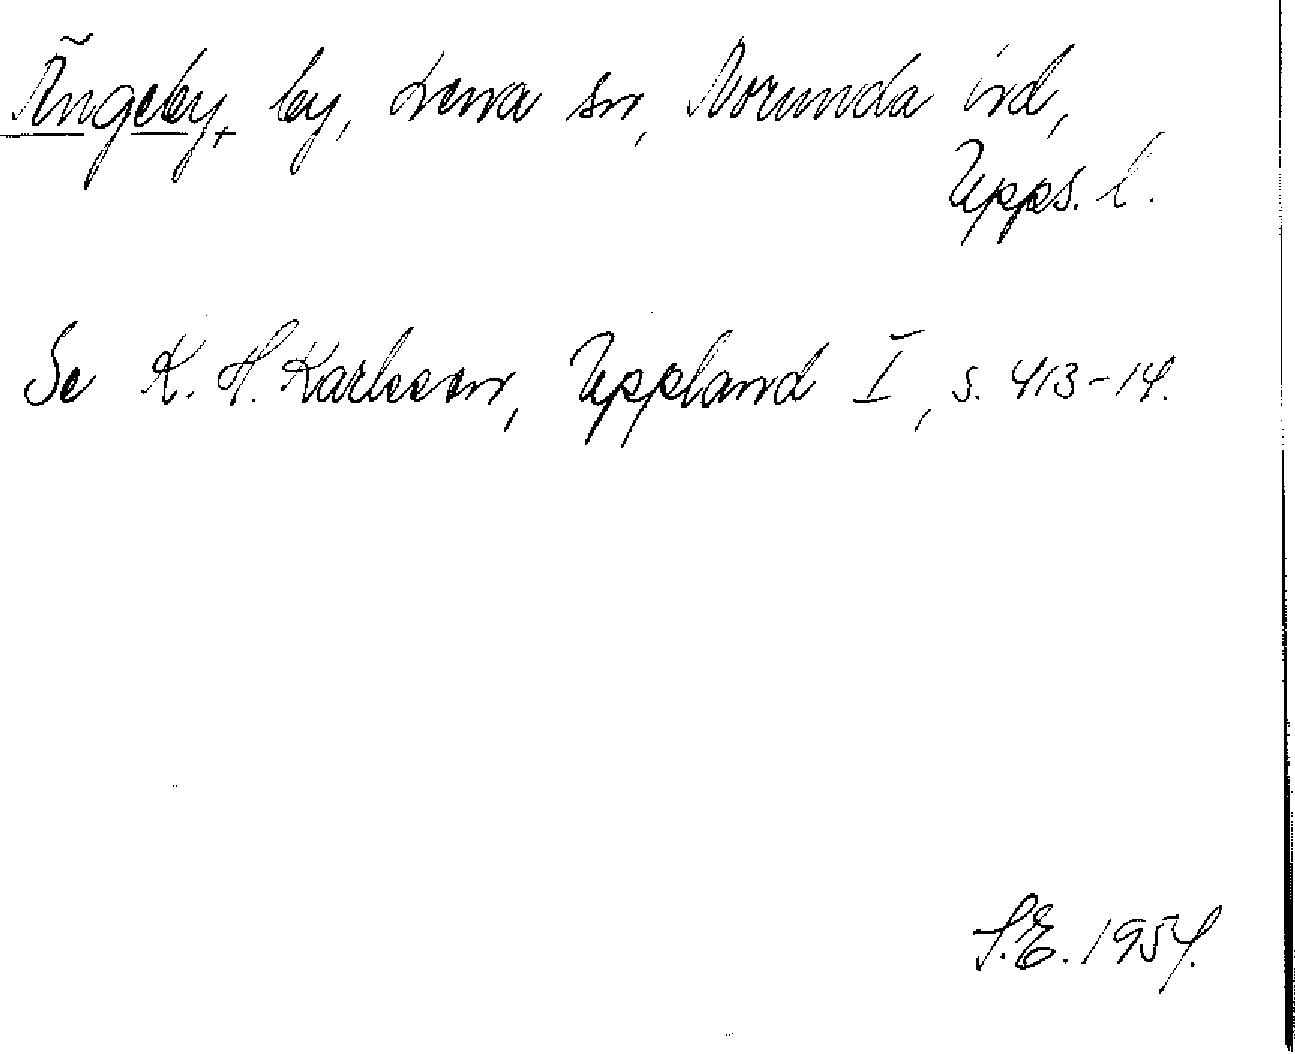 Ängeby, by, Lena sn, Norunda hd,
Upps. l.
Se K. H. Karlsson, Uppland I, s. 413-14.
S.E. 1954.